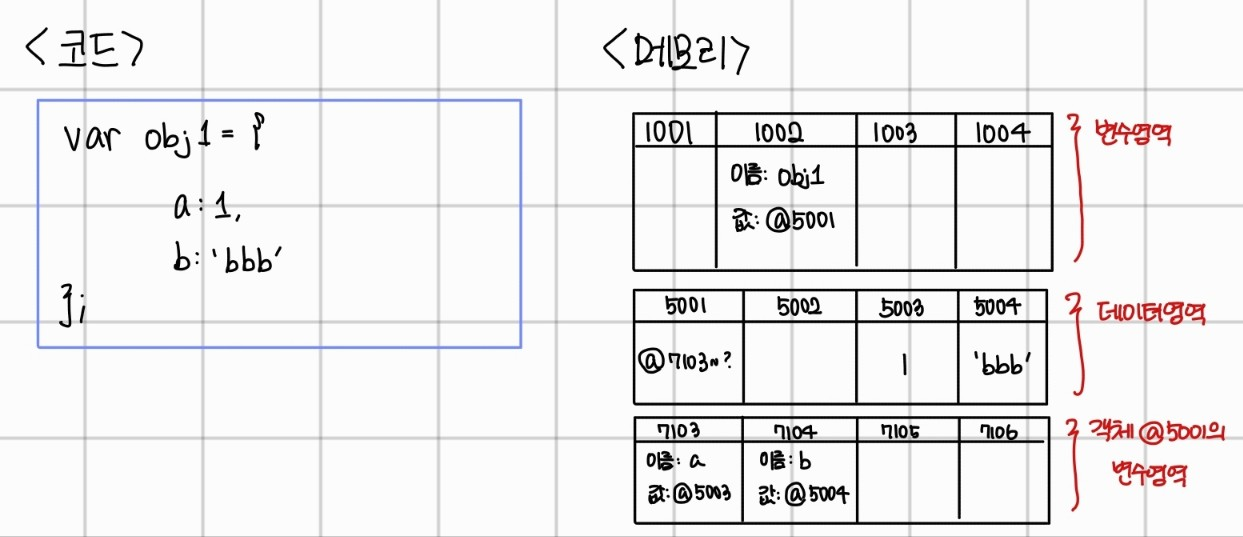 <코드>
var obj1 = {
a: 1,
b: 'bbb'
};
<메모리>
1001 1002 1003 1004
이름: obj1
값: @5001
변수영역
5001 5002 5003 5004
@7103~? 1 'bbb'
데이터영역
7103 7104 7105 7106
이름: a 이름: b
값: @5003 값: @5004
객체 @5001의
변수영역